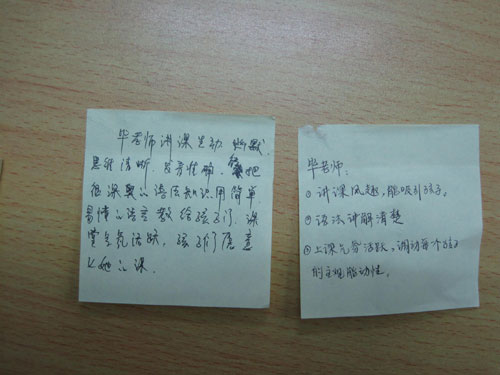 毕老师讲课生动 幽默
思维清晰. 发音准确. 能把
很深奥的语法知识用简单
易懂的语言教给孩子们. 课
堂气氛活跃, 孩子们愿意
上她的课.
毕老师:
① 讲课风趣, 能吸引孩子,
② 语法讲解清楚
③ 上课气氛活跃, 调动每个孩子
的主观能动性.